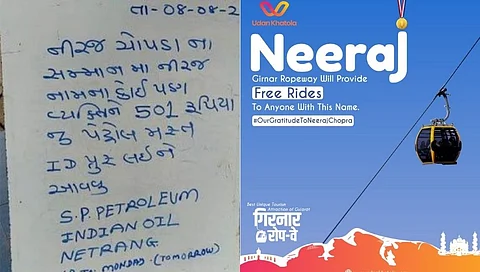 તા-08-08-2
નીરજ ચોપડા ના
સન્માન મા નીરજ
નામના કોઈ પણ
વ્યક્તિને 501 રૂપિયા
નુ પેટ્રોલ મફત
ID પ્રુફ લઈને
આવવુ
S.P. PETROLEUM
INDIAN OIL
NETRANG
MONDAY (TOMORROW)
Udan Khatola
Neeraj
Girnar Ropeway Will Provide
Free Rides
To Anyone With This Name.
#OurGratitudeToNeerajChopra
Best Unique Tourism
Attraction of Gujarat
गिरनार
रोप-वे